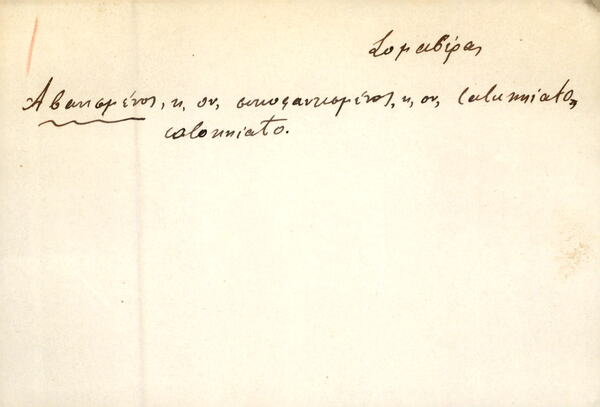 Σομαβέρας
Αβανισμένος, η, ον, συκοφαντισμένος, η, ον, calunniato,
calonniato.